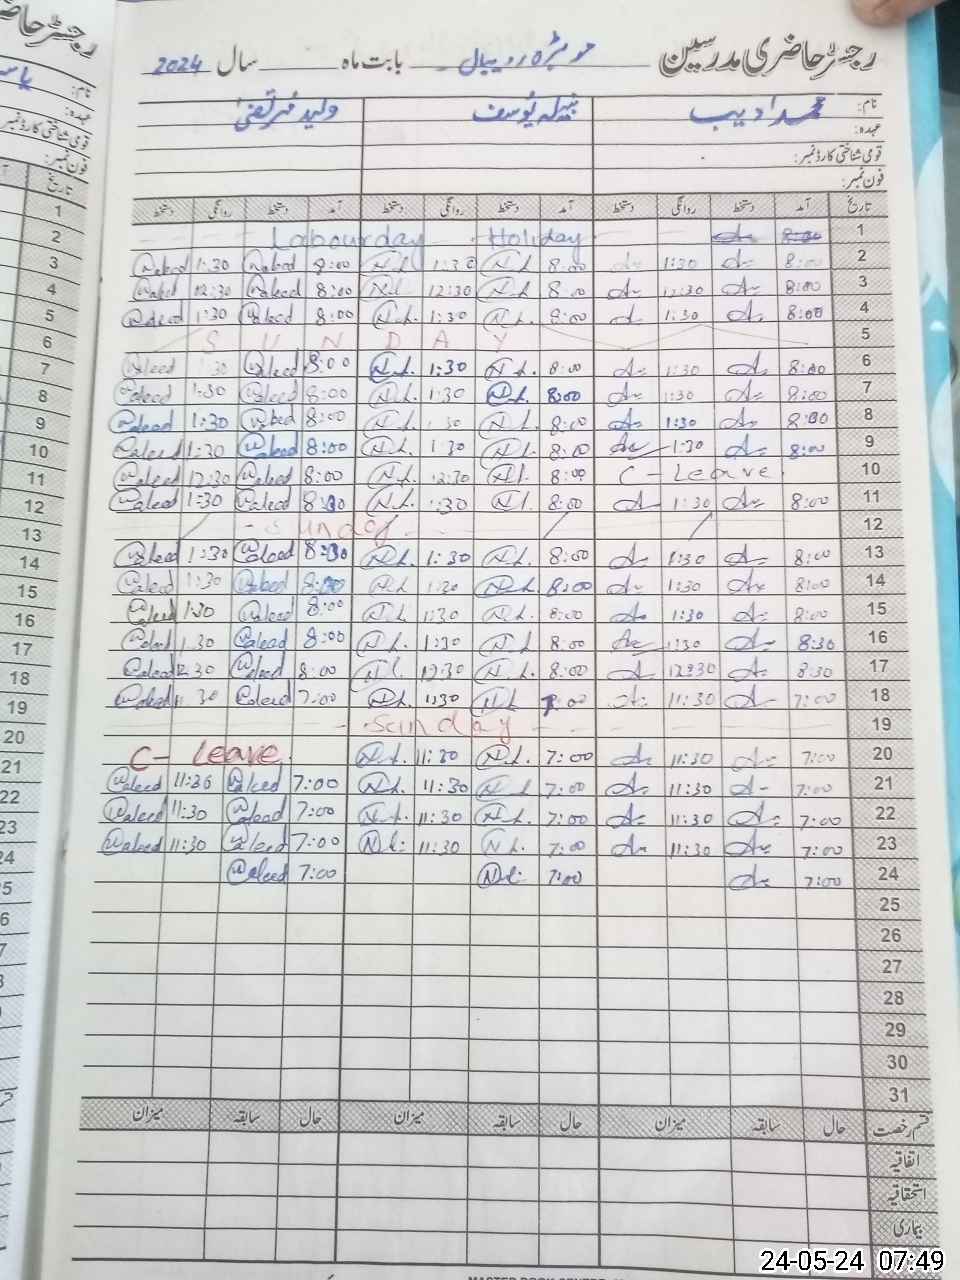 رجسٹر حاضری مدرسین بابت ماہ سال 2024
نام: محمد ادیب نبیلہ یوسف ولید مرتضیٰ
عہدہ:
قومی شناختی کارڈ نمبر:
فون نمبر:
تاریخ آمد دستخط روانگی دستخط آمد دستخط روانگی دستخط آمد دستخط روانگی دستخط
1 8:00 A Labour day Holiday
2 8:00 A 1:30 8:00 N.L. 1:30 N.L. 8:00 Waleed 1:30 Waleed
3 8:00 A 12:30 8:00 N.L. 12:30 N.L. 8:00 Waleed 12:30 Waleed
4 8:00 A 1:30 A 8:00 N.L. 1:30 N.L. 8:00 Waleed 1:30 Waleed
5 SUNDAY
6 8:00 A 1:30 A 8:00 N.L. 1:30 N.L. 8:00 Waleed 30 Waleed
7 8:00 A 1:30 A 8:00 N.L. 1:30 N.L. 8:00 Waleed 1:30 Waleed
8 8:00 A 1:30 A 8:00 N.L. 30 N.L. 8:00 Waleed 1:30 Waleed
9 8:00 A 1:30 A 8:00 N.L. 1:30 N.L. 8:00 Waleed 1:30 Waleed
10 C- Leave 8:00 N.L. 12:30 N.L. 8:00 Waleed 12:30 Waleed
11 8:00 A 1:30 A 8:00 N.L. 1:30 N.L. 8:00 Waleed 1:30 Waleed
12 Sunday
13 8:00 A 1:30 A 8:00 N.L. 1:30 N.L. 8:00 Waleed 1:30 Waleed
14 8:00 A 1:30 A 8:00 N.L. 1:30 N.L. 8:00 Waleed 1:30 Waleed
15 8:00 A 1:30 A 8:00 N.L. 1:30 N.L. 8:00 Waleed 1:30 Waleed
16 8:30 A 1:30 A 8:00 N.L. 1:30 N.L. 8:00 Waleed 1:30 Waleed
17 8:30 A 12:30 A 8:00 N.L. 12:30 N.L. 8:00 Waleed 12:30 Waleed
18 7:00 A 11:30 A 7:00 N.L. 1:30 N.L. 7:00 Waleed 11:30 Waleed
19 Sunday
20 7:00 A 11:30 A 7:00 N.L. 11:30 N.L. C- Leave
21 7:00 A 11:30 A 7:00 N.L. 11:30 N.L. 7:00 Waleed 11:30 Waleed
22 7:00 A 11:30 A 7:00 N.L. 11:30 N.L. 7:00 Waleed 11:30 Waleed
23 7:00 A 11:30 A 7:00 N.L. 11:30 N.L. 7:00 Waleed 11:30 Waleed
24 7:00 A 7:00 N.L. 7:00 Waleed
25
26
27
28
29
30
31
قسم رخصت حال سابقہ میزان حال سابقہ میزان حال سابقہ میزان
اتفاقیہ
استحقاقیہ
بیماری
24-05-24 07:49